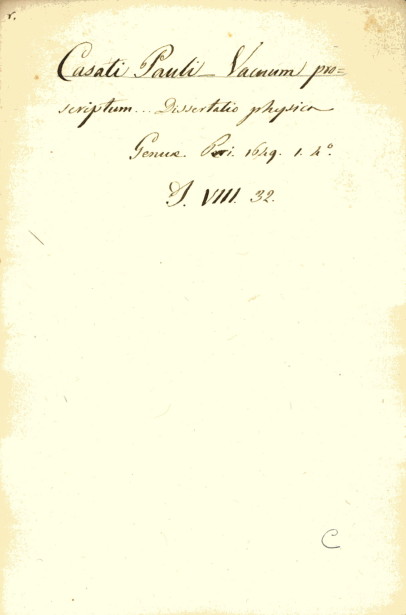 r.
Casati Pauli - Vacuum pro=
scriptum... Dissertatio physica
Genuæ. Peri. 1649. 1. 4°.
S. VIII. 32.
C